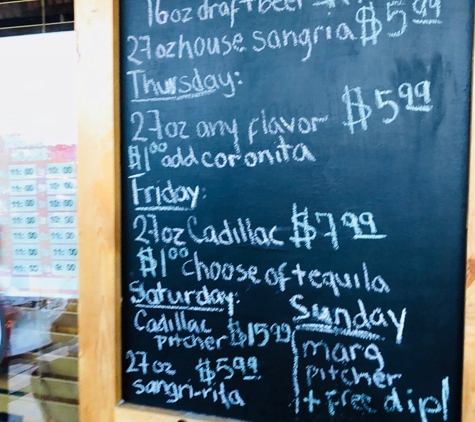 16oz draft beer
27oz house sangria $5.99
Thursday:
27oz any flavor $5.99
$1.00 add coronita
Friday:
27oz Cadillac $7.99
$1.00 choose of tequila
Saturday:
Cadillac pitcher $15.99
27oz $5.99
sangri-rita
Sunday
marg
pitcher
+ free dip!
11:00